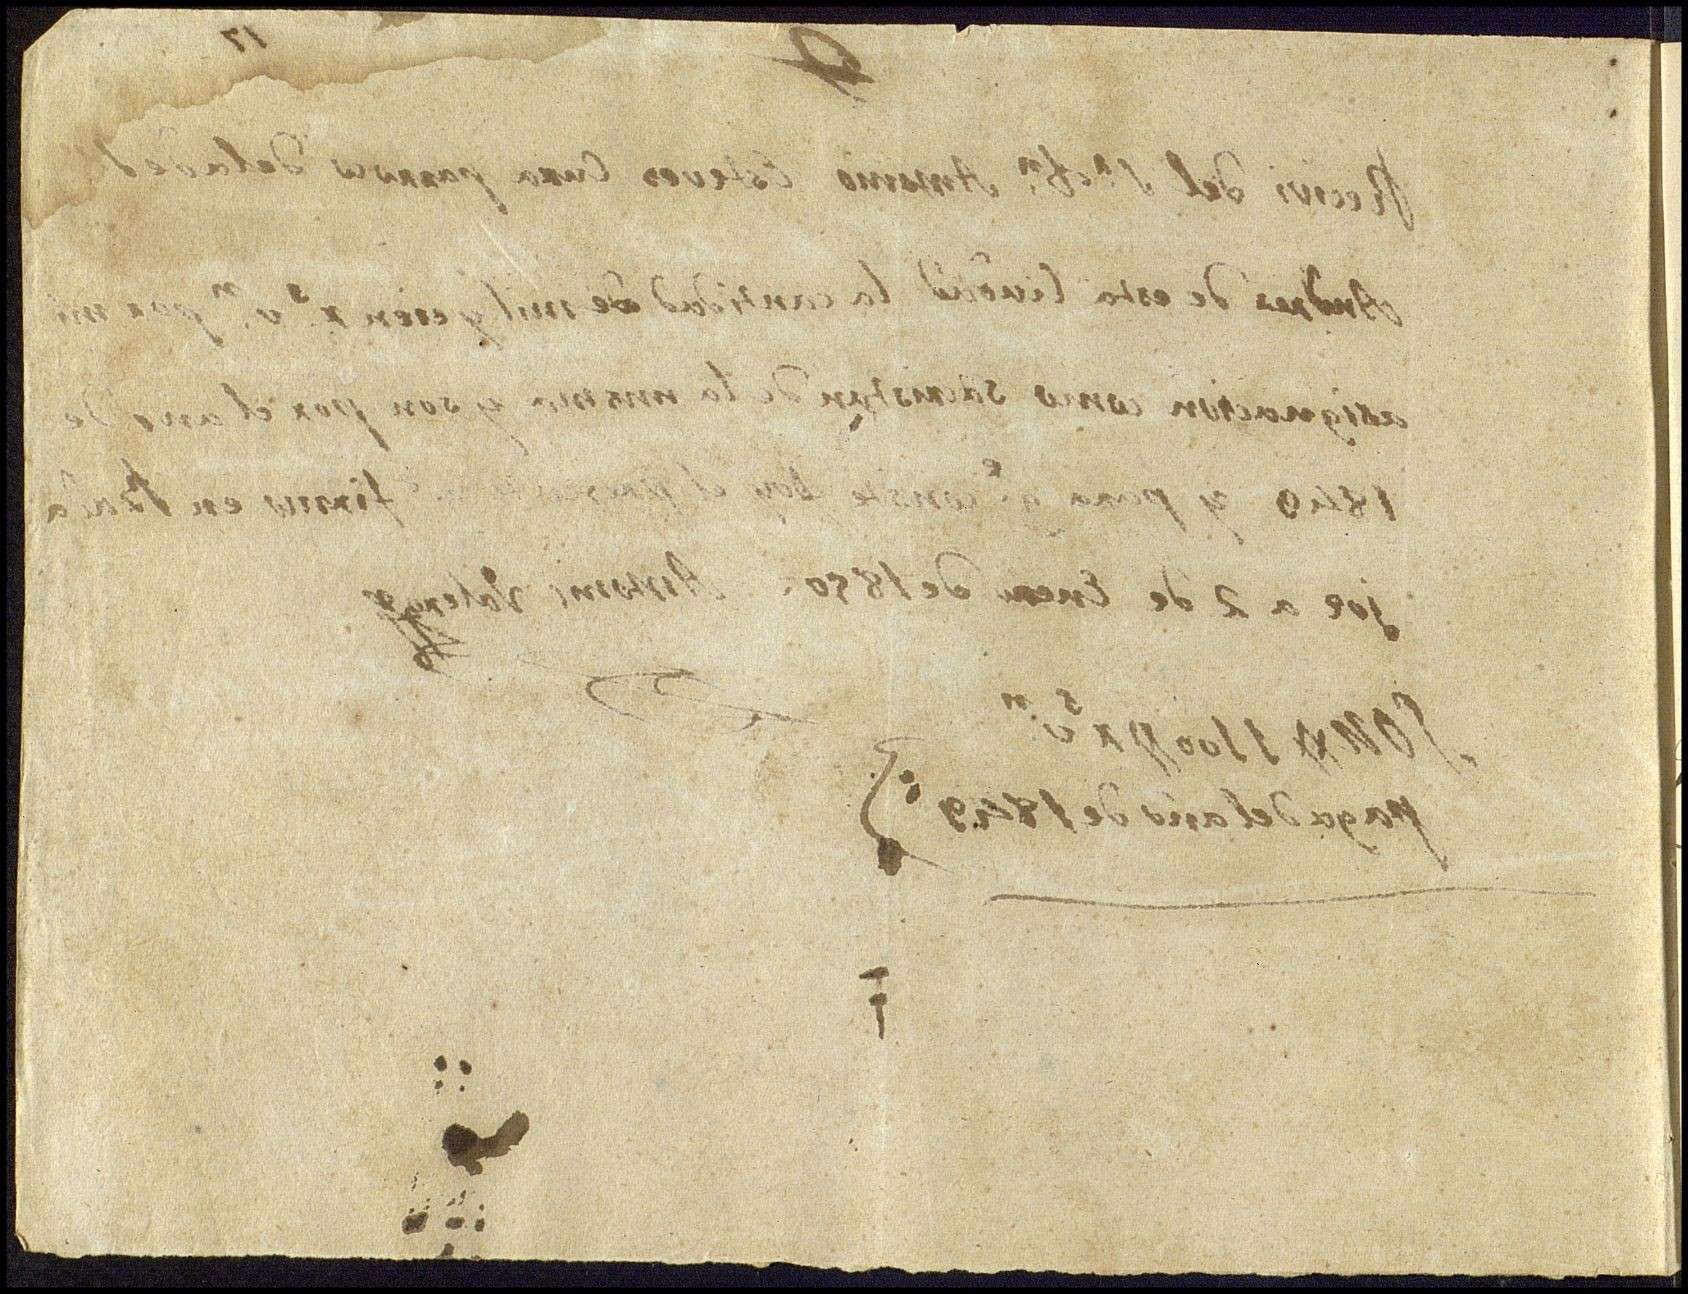 17
Recivi del Sr. Dn. Antonio Esteves Cura parroco dela de S
Andres de esta Ciudad la cantidad de mil y cien rs. vn. por mi
asignacion como sacristan de la misma y son por el año de
1849 y para qe conste doy el presente firmo en Bada
joz a 2 de Enero de 1850. Antonio
Son 1100 rs vn
paga del año de 1849